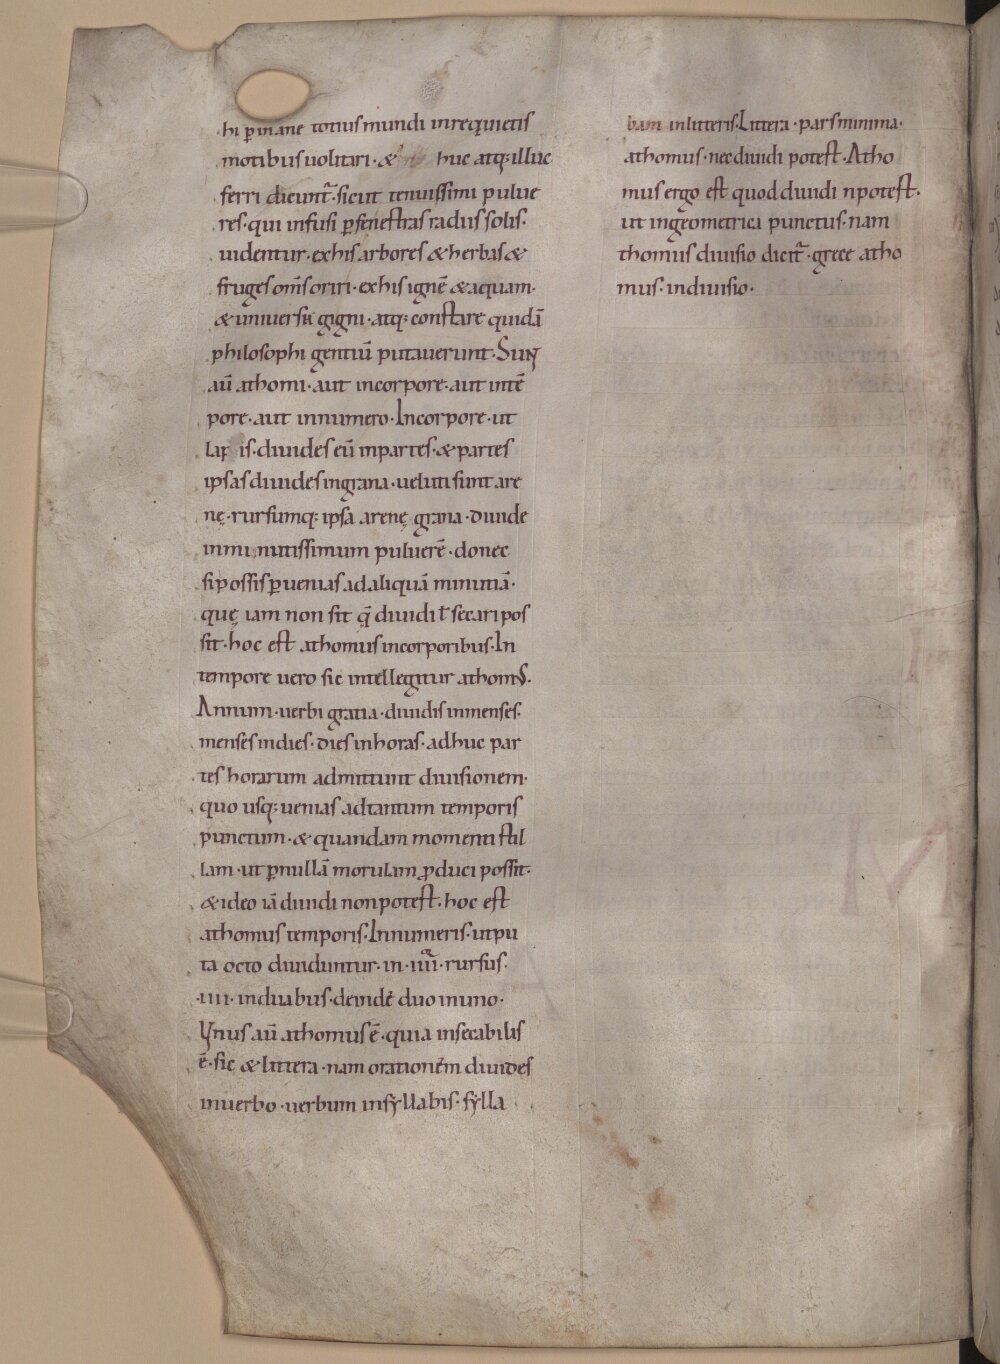 hi ꝑ inane totius mundi inrequietis
motibus uolitari · & huc atq; illuc
ferri dicunt̄ · sicut tenuissimi pulue
res · qui infusi ꝑ fenestras radiis solis ·
uidentur · ex his arbores & herbas &
fruges om̄s oriri · ex his ignē & aquam ·
& uniuersa gigni · atq; constare quidā
philosophi gentiū putauerunt · Sunt
aū athomi · aut incorpore · aut intē
pore · aut innumero · Incorpore · ut
lap is · diuides eū inpartes · & partes
ipsas diuides ingrana · ueluti sunt are
nę · rursumq; ipsa arenę grana · diuide
inminutissimum puluerē · donec
si possis ꝑuenias ad aliquā minutiā ·
quę iam non sit q̄ diuidi ł secari pos
sit · hoc est athomus incorporibus · In
tempore uero sic intellegitur athomus ·
Annum · uerbi gratia · diuidis inmenses ·
menses indies · dies inhoras · adhuc par
tes horarum admittunt diuisionem ·
quo usq; uenias adtantum temporis
punctum · & quandam momenti stil
lam · ut ꝑ nullā morulam ꝓduci possit ·
& ideo iā diuidi non potest · hoc est
athomus temporis · Innumeris · utpu
ta octo diuiduntur · in · iiii · rursus ·
· iiii · induabus · deindē duo inuno ·
Vnus aū athomus ē · quia insecabilis
ē · sic & littera · nam orationem diuides
inuerbo · uerbum insyllabis · sylla
bam inlitteris · Littera · pars minima ·
athomus · nec diuidi potest · Atho
mus ergo est quod diuidi n̄ potest ·
ut ingeometrica punctus · nam
thomus diuisio dicit̄ · grece atho
mus · indiuisio ·